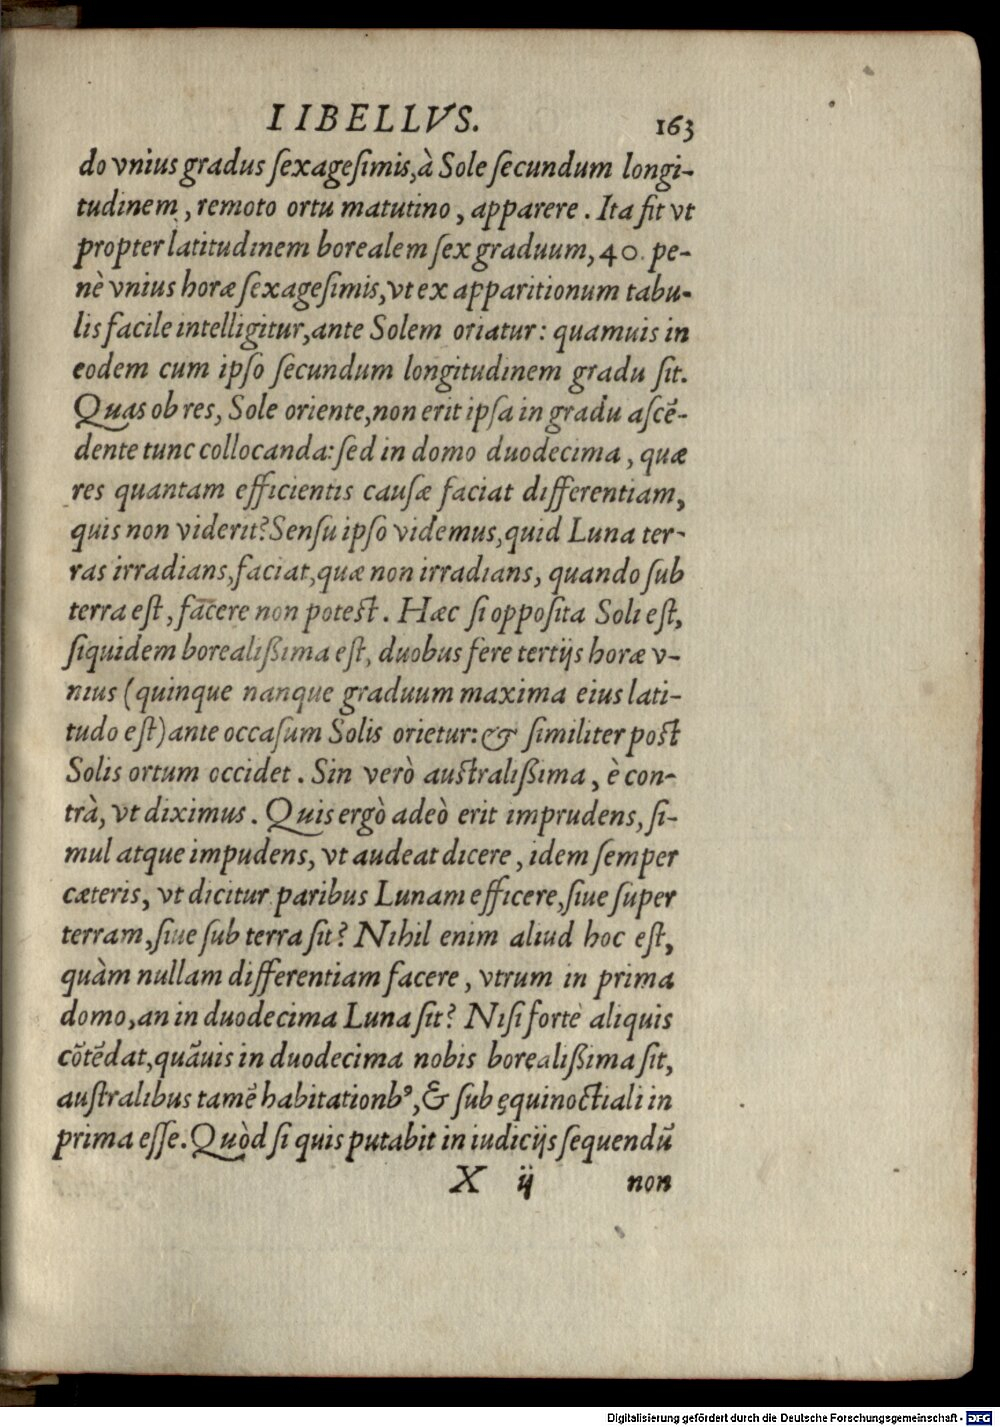 IIBELLVS. 163
do vnius gradus ſexageſimis,à Sole ſecundum longi-
tudinem, remoto ortu matutino, apparere. Ita fit vt
propter latitudinem borealem ſex graduum, 40. pe-
nè vnius horæ ſexageſimis,vt ex apparitionum tabu-
lis facile intelligitur,ante Solem oriatur: quamuis in
eodem cum ipſo ſecundum longitudinem gradu ſit.
Quas ob res, Sole oriente,non erit ipſa in gradu aſcē-
dente tunc collocanda: ſed in domo duodecima, quæ
res quantam efficientis cauſæ faciat differentiam,
quis non viderit? Senſu ipſo videmus,quid Luna ter-
ras irradians,faciat,quæ non irradians, quando ſub
terra eſt, facere non poteſt. Hæc ſi oppoſita Soli eſt,
ſiquidem borealißima eſt, duobus fere tertijs horæ v-
nius (quinque nanque graduum maxima eius lati-
tudo eſt) ante occaſum Solis orietur: & ſimiliter poſt
Solis ortum occidet. Sin verò auſtralißima, è con-
trà, vt diximus. Quis ergò adeò erit imprudens, ſi-
mul atque impudens, vt audeat dicere, idem ſemper
cæteris, vt dicitur paribus Lunam efficere,ſiue ſuper
terram,ſiue ſub terra ſit? Nihil enim aliud hoc eſt,
quàm nullam differentiam facere, vtrum in prima
domo,an in duodecima Luna ſit? Niſi fortè aliquis
cōtēdat,quāuis in duodecima nobis borealißima ſit,
auſtralibus tamē habitationbꝰ,& ſub ęquinoctiali in
prima eſſe. Quòd ſi quis putabit in iudicijs ſequendū
X ij non
Digitalisierung gefördert durch die Deutsche Forschungsgemeinschaft - DFG